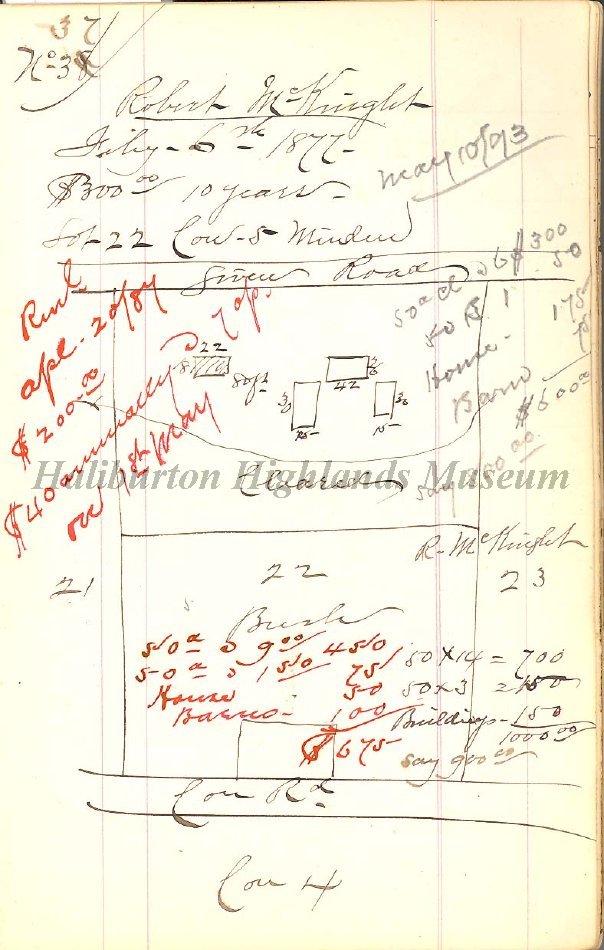 37
No 38
Robert McKnight
Feby - 6th 1877 -
May 10/93
$300 00 10 years -
Lot 22 Con - 5 Minden
River Road
Rent
Apl. 20/87
$200.00
$40 annually 7 apc
on 1st May
50a @ 6 $300
50 @ 1 50
House -
Barn 175
$600 00
say 500 00
22
18
80 ft
42
26
30
15
30
15
Haliburton Highlands Museum
Cleared
R - McKnight
21
22
23
Bush
50a @ 9 00 450
50a @ 1 50 75
House 50
Barns - 100
$675
50 x 14 = 700
50 x 3 = 150
Buildings - 150
1000 00
say 900 00
Con Rd
Con 4